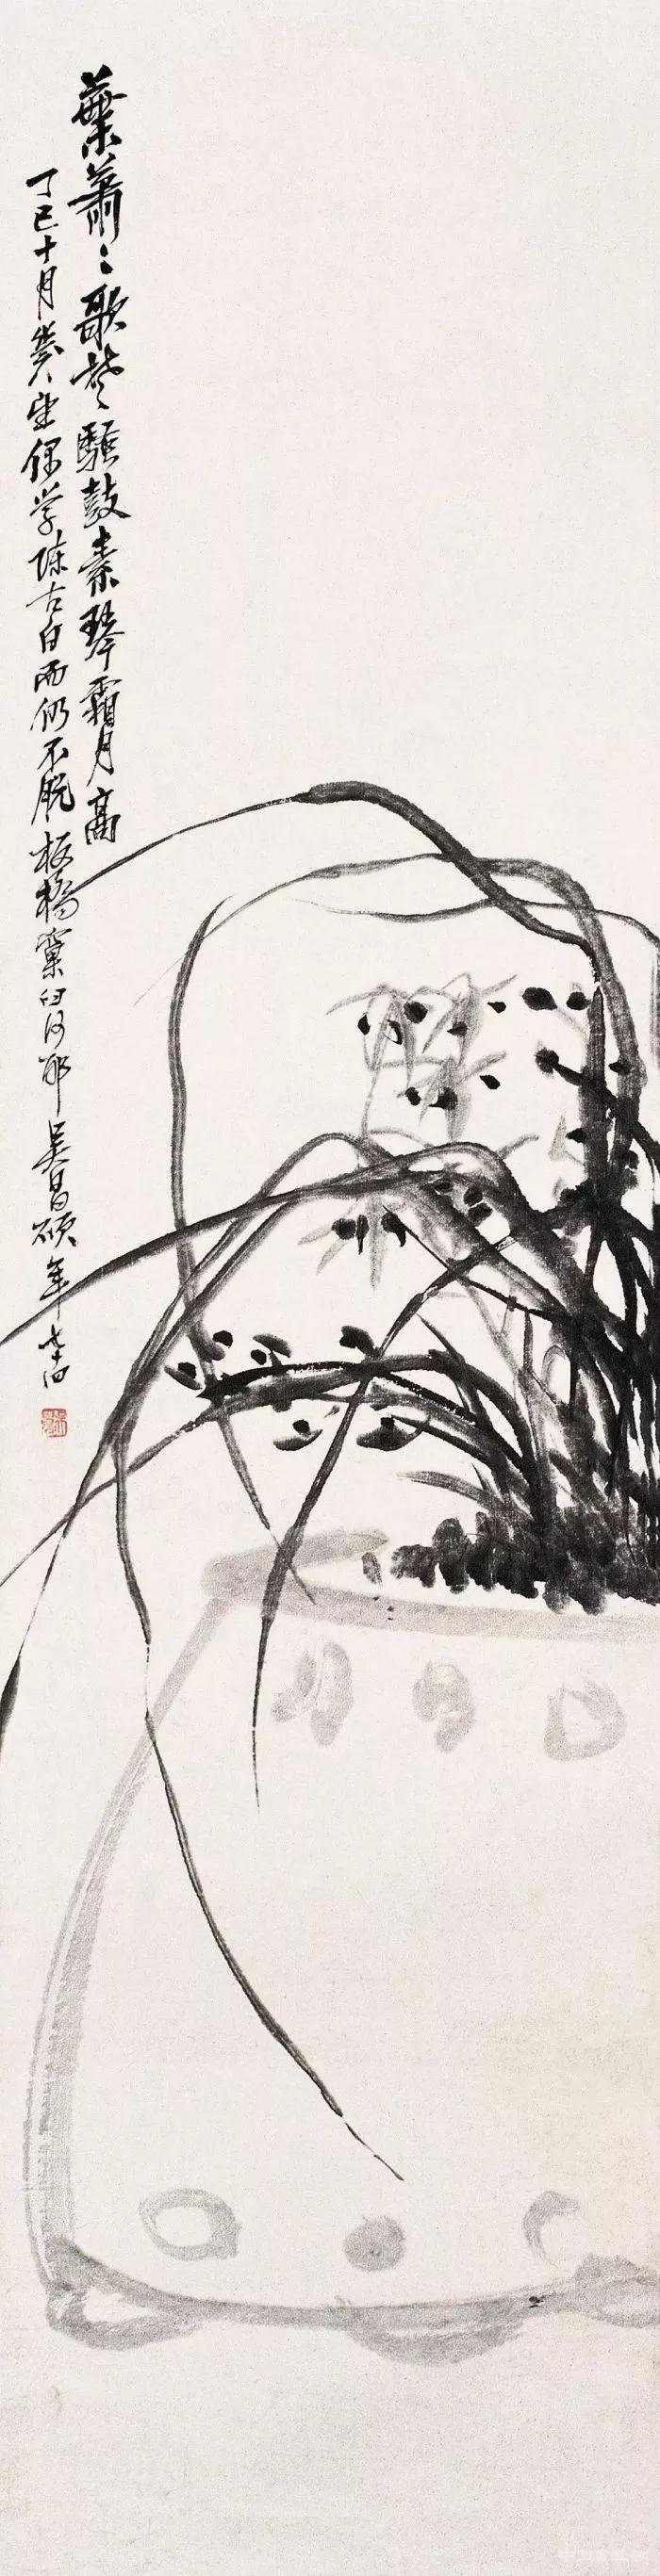 葉蕭〻歌楚騷鼓素琴霜月高
丁巳十月幾望偶学陳古白而仍不脱板橋窠臼何耶吳昌碩年七十四